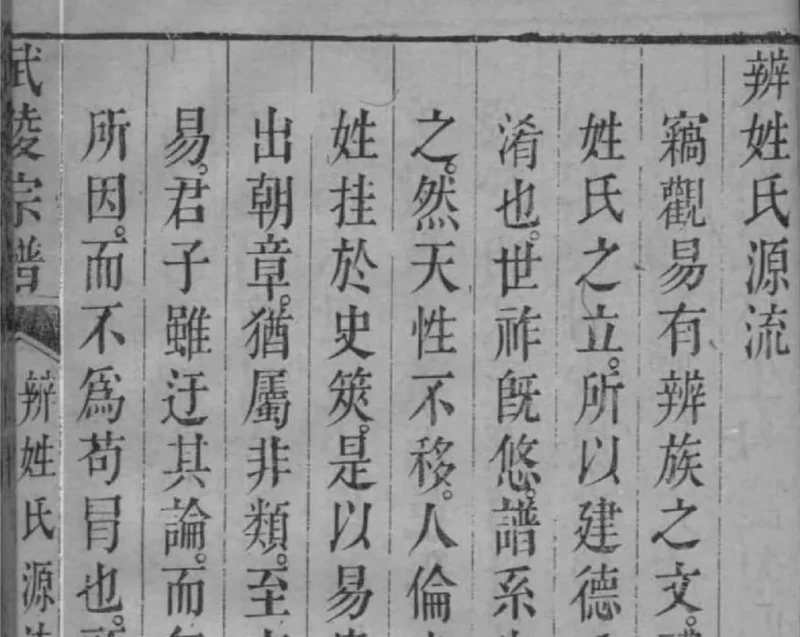 辨姓氏源流
竊觀易有辨族之文。
姓氏之立。所以建德
淆也。世祚旣悠。譜系
之。然天性不移。人倫
姓挂於史筴。是以易
出朝章。猶屬非類。至
易。君子雖迂其論。而
所因。而不爲苟冐也。
武陵宗譜
辨姓氏源